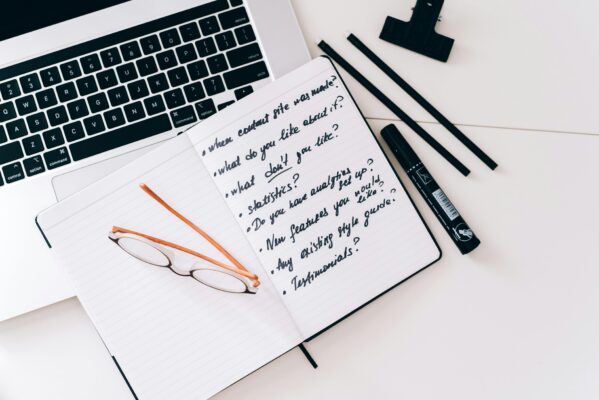 • When current site was made?
• What do you like about it?
• What don't you like?
• Statistics?
• Do you have analytics set up?
• New features you would like?
• Any existing style guide?
• Testimonials?